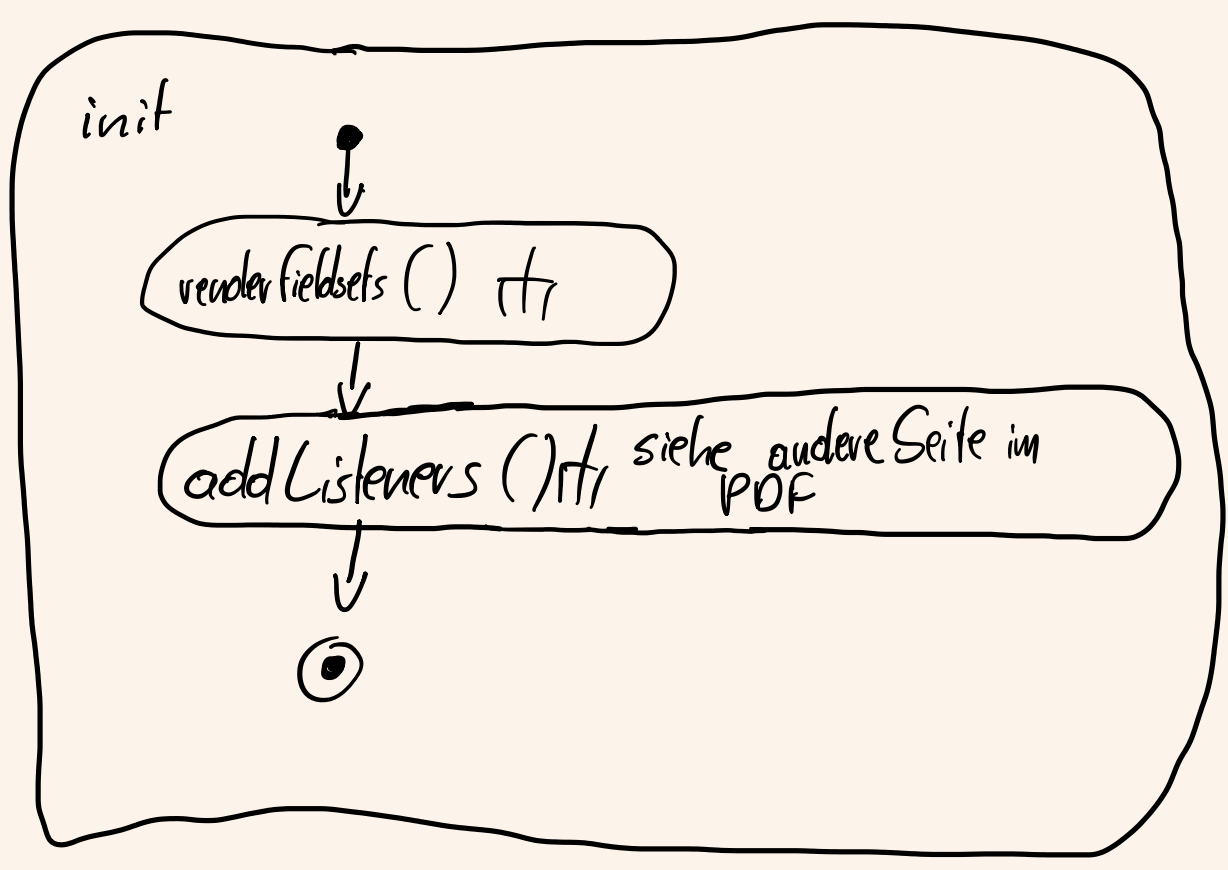 init
renderFieldsets ()
addListeners () siehe andere Seite im
PDF